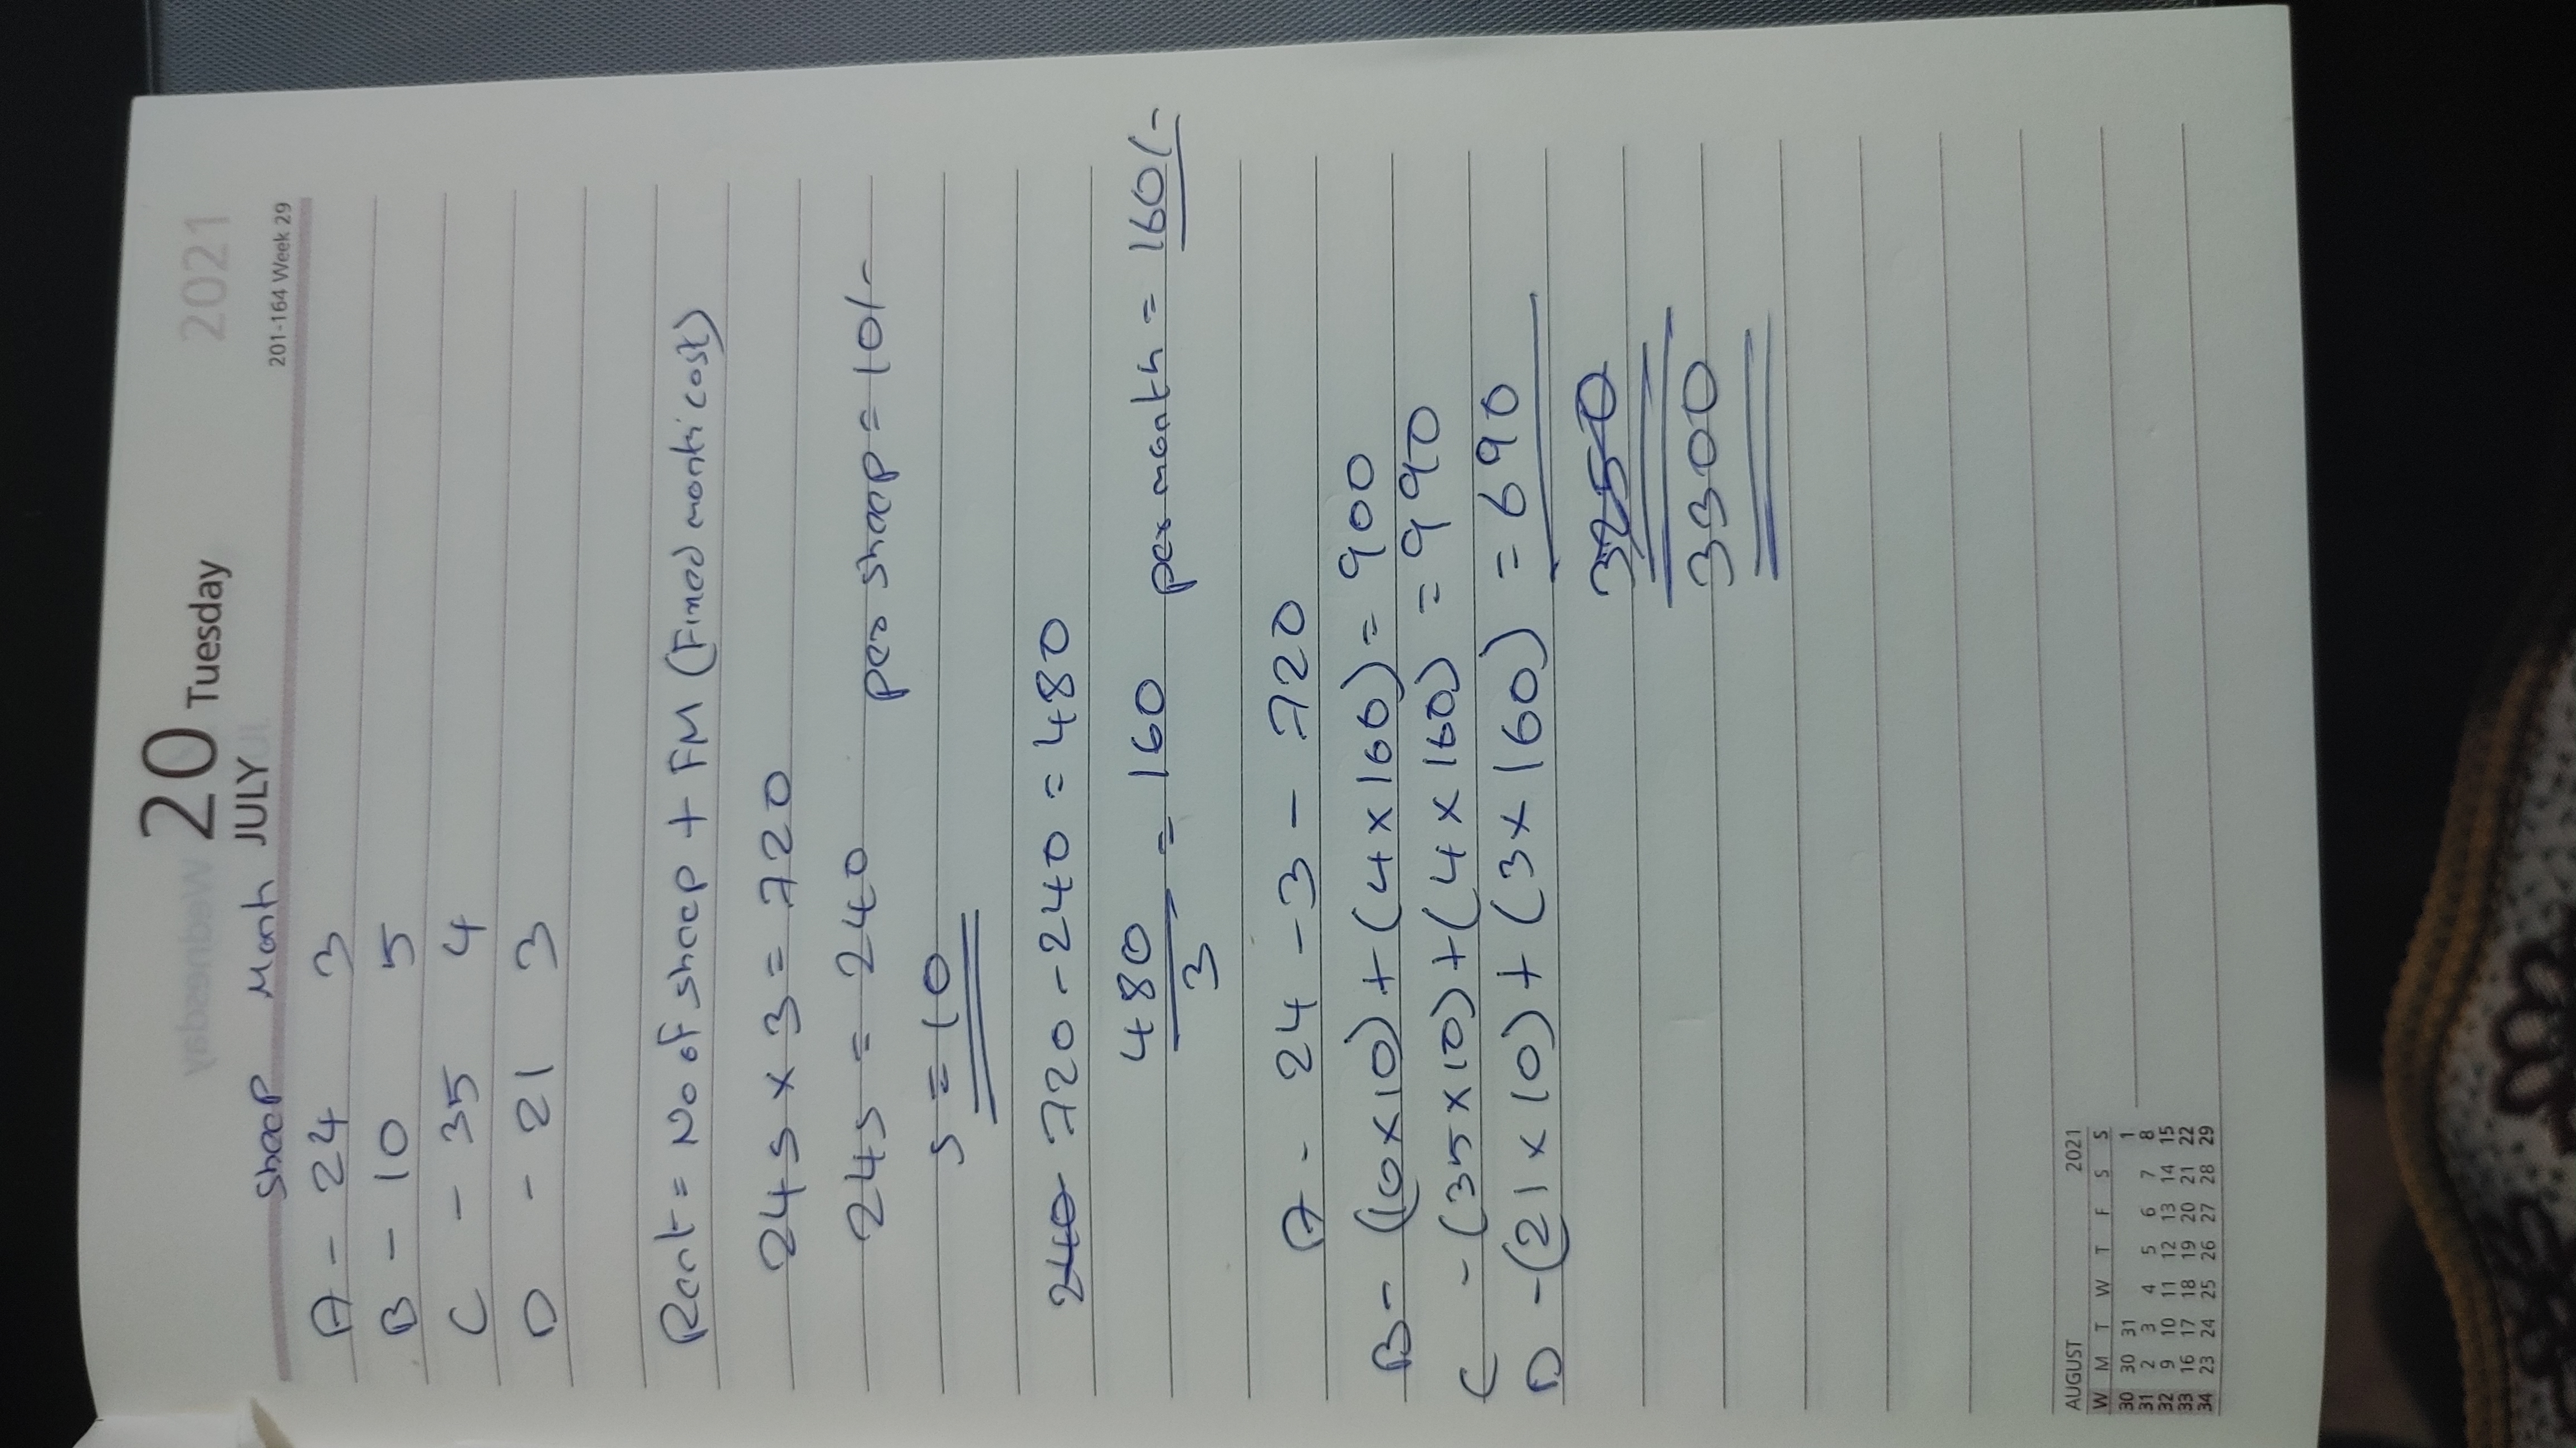 20 Tuesday 2021
JULY 201-164 Week 29
Sheep Month
A - 24 3
B - 10 5
C - 35 4
D - 21 3
Rent = No of sheep + FM (Fixed month cost)
24s x 3 = 720
24s = 240 per sheep = 10/-
s = 10
240 720 - 240 = 480
480
3 = 160 per month = 160/-
A - 24 - 3 - 720
B - (10 x 10) + (4 x 160) = 900
C - (35 x 10) + (4 x 160) = 990
D - (21 x 10) + (3 x 160) = 690
3250
3300
AUGUST 2021
W M T W T F S S
30 30 31 1
31 2 3 4 5 6 7 8
32 9 10 11 12 13 14 15
33 16 17 18 19 20 21 22
34 23 24 25 26 27 28 29